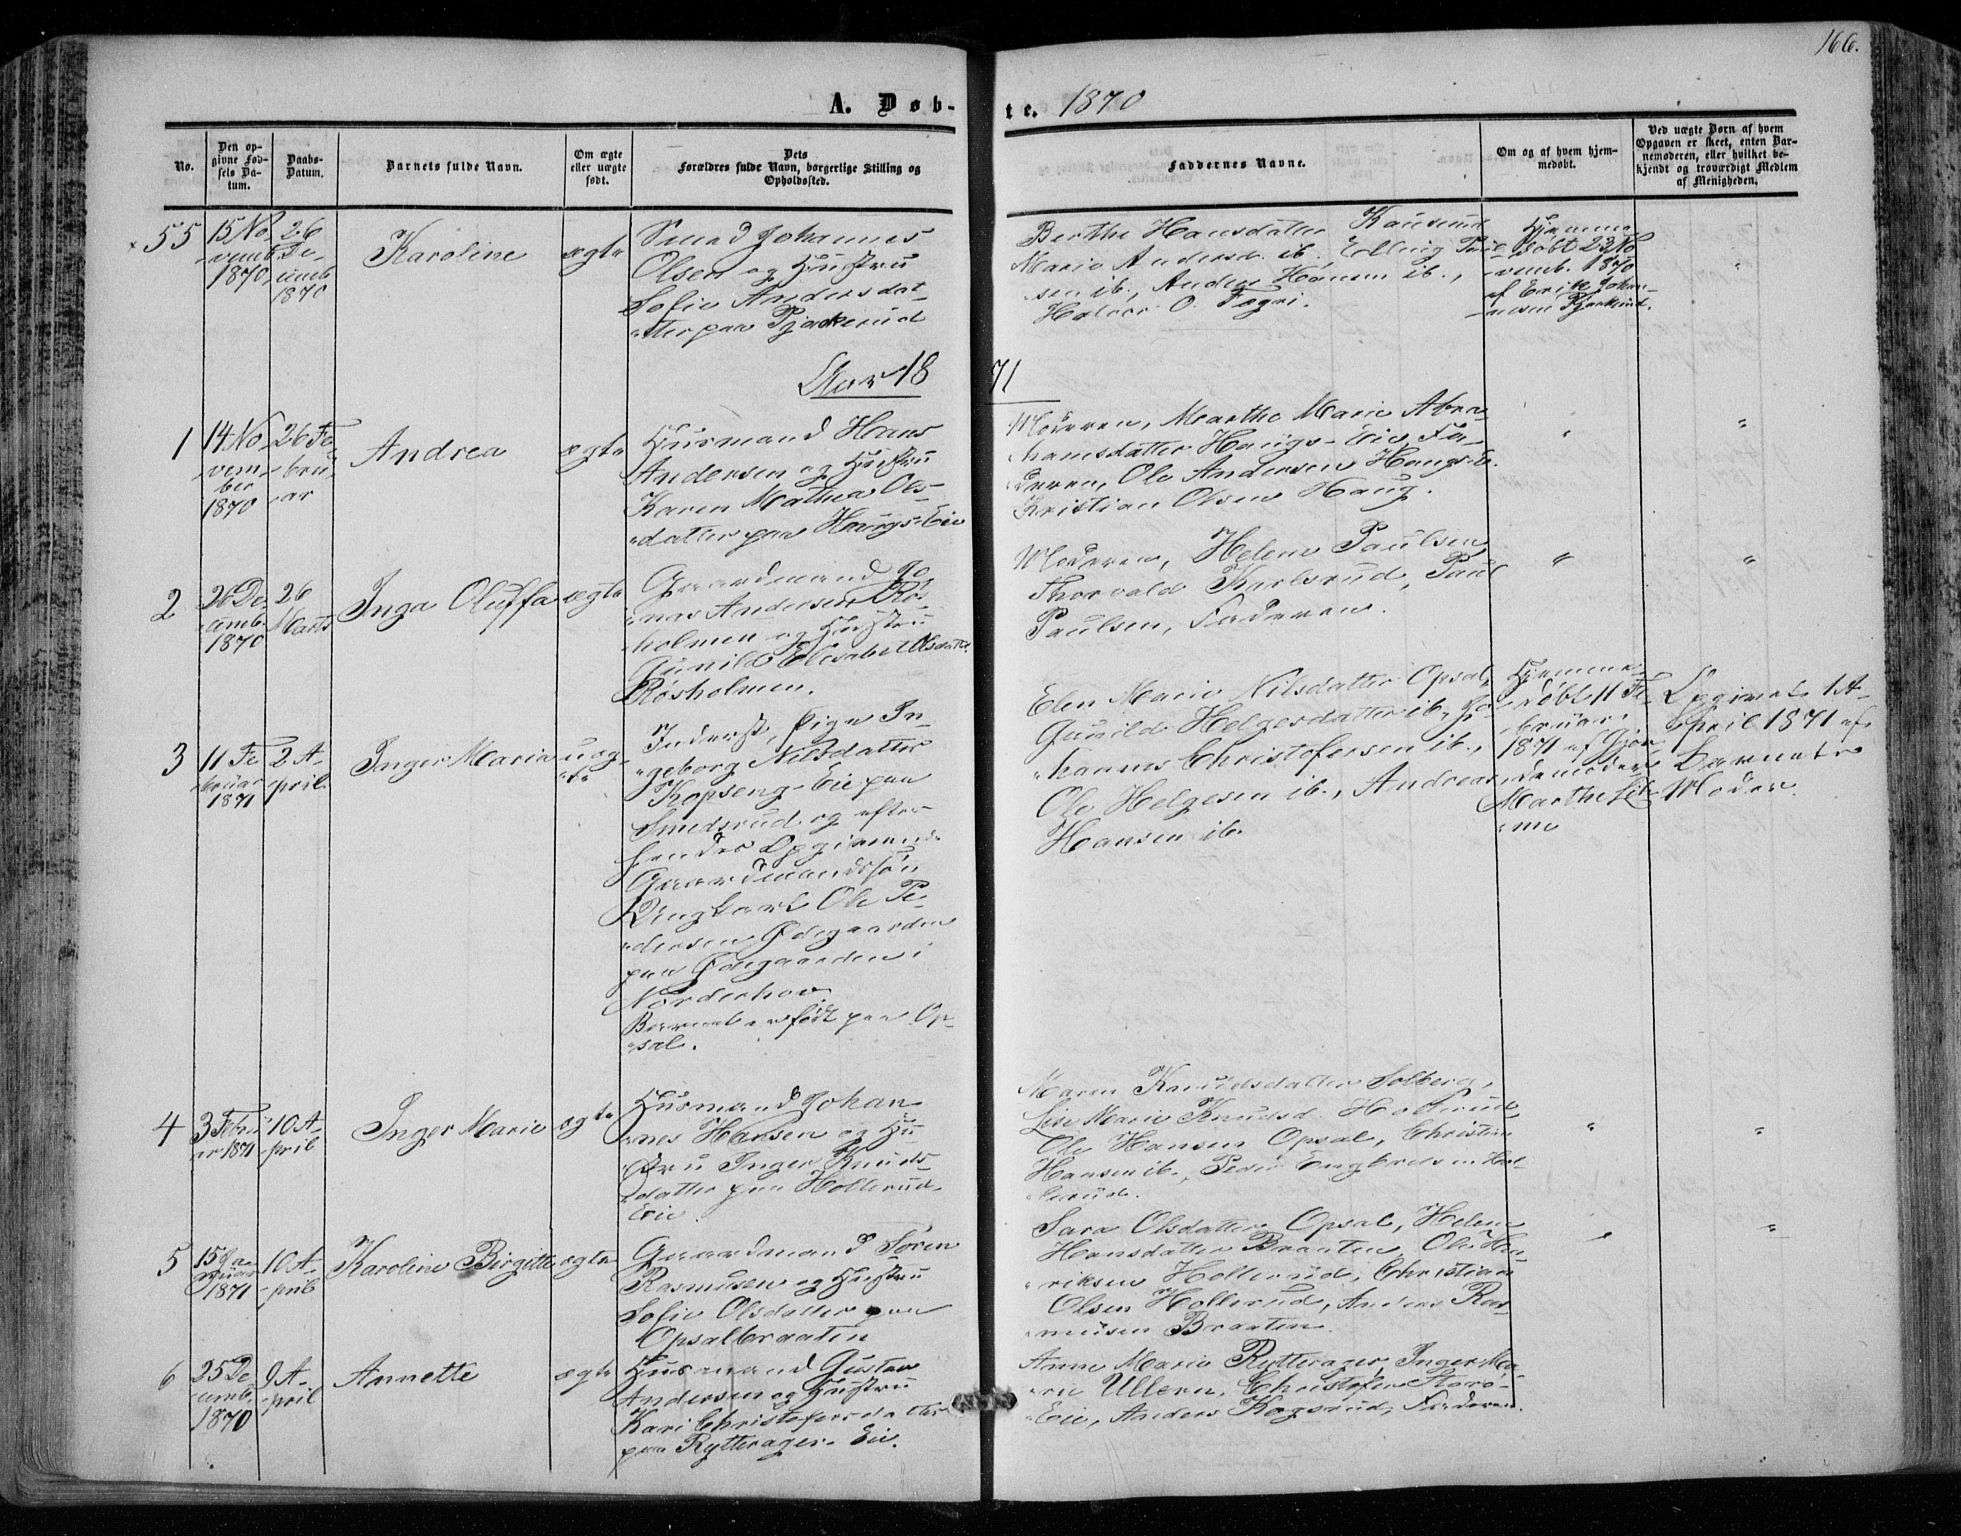 166.
A. Døb-
te. 1870
No.
Den op-
givne Fød-
sels Da-
tum.
Daabs-
Datum.
Barnets fulde Navn.
Om ægte
eller uægte
født.
Dets
Forældres fulde Navn, borgerlige Stilling og
Opholdssted.
Faddernes Navne.
Om og af hvem hjem-
medøbt.
Ved uægte Børn af hvem
Opgaven er skeet, enten Bar-
nemoderen, eller hvilket be-
kjendt og troværdigt Medlem
af Menigheden.
55
15 No-
vemb.
1870
26
De-
cemb.
1870
Karoline
ægte
Smed Johannes
Olsen og Hustru
Sofie Andersdat-
ter paa Pjaakerud
Berthe Hansdatter
Marie Andersd. ib., Elling
sen ib., Anders Hansen ib.,
Halvor O. Fagri.
Hjemme-
døbt 23 No-
vemb. 1870
af Erik Johan-
nesen
"
Aar 18
71
1
14 No-
vem-
ber
1870
26 Fe-
bru-
ar
Andrea
ægte
Husmand Hans
Andersen og Hustru
Karen Mathea Ols-
datter paa Haugs-Eie
Moderen, Marthe Marie Abra-
hamsdatter Haugs-Eie, Fa-
deren, Ole Andersen Haugs-E.
Kristian Olsen Haug.
"
"
2
26 De-
cemb.
1870
26
Marts
Inga Oluffa
ægte
Gaardmand Jo-
nas Andersen Røs-
holmen og Hustru
Gunild Elisabet Olsdatter
Røsholmen.
Moderen, Helene Paulsen,
Thorvald Karlsrud, Paul
Paulsen, Faderen.
"
"
3
11 Fe-
bruar
1871
2 A-
pril
Inger Maria
uæg-
te
Inderst, Pige In-
geborg Nilsdatter
Kopseng-Eie paa
Smedsrud og efter
hendes Opgivende
Gaardmandssøn
Ungkarl Ole Pe-
dersen Ødegaarden
paa Ødegaarden i
Norderhov
Barnet er født paa Op-
sal.
Elen Marie Nilsdatter Opsal,
Gunild Helgesdatter ib., Jo-
hannes Christofersen ib.,
Ole Helgesen ib., Andreas
Hansen ib.
Hjemme-
døbt 11 Fe-
bruar
1871 af Gjor-
demoder
Marthe Lil-
me
Opgivet 1 A-
pril 1871 af
Barnets
Moder.
4
3 Febru-
ar 1871
10 A-
pril
Inger Marie
ægte
Husmand Johan-
nes Hansen og Hu-
stru Inger Knuds-
datter paa Hollerud-
Eie.
Maren Knudsdatter Solberg,
Lise Marie Knudsd. Hollerud,
Ole Hansen Opsal, Christian
Hansen ib., Peder Engebretsen Hol-
lerud.
"
"
5
15 Ja-
nuar
1871
10 A-
pril
Karoline Birgitte
ægte
Gaardmand Søren
Rasmusen og Hustru
Sofie Olsdatter paa
Opsalbraaten
Sara Olsdatter Opsal, Helene
Hansdatter Braaten, Ole Hen-
riksen Hollerud, Christian
Olsen Hollerud, Anders Ras-
musen Braaten.
"
"
6
25 De-
cemb.
1870
9 A-
pril
Annette
ægte
Husmand Gustav
Andersen og Hustru
Kari Christofersdatter
paa Rytterager-Eie.
Anne Marie Rytterager, Inger Ma-
rie Ullern, Christofer Storø-
Eie, Anders Kogsrud, Faderen.